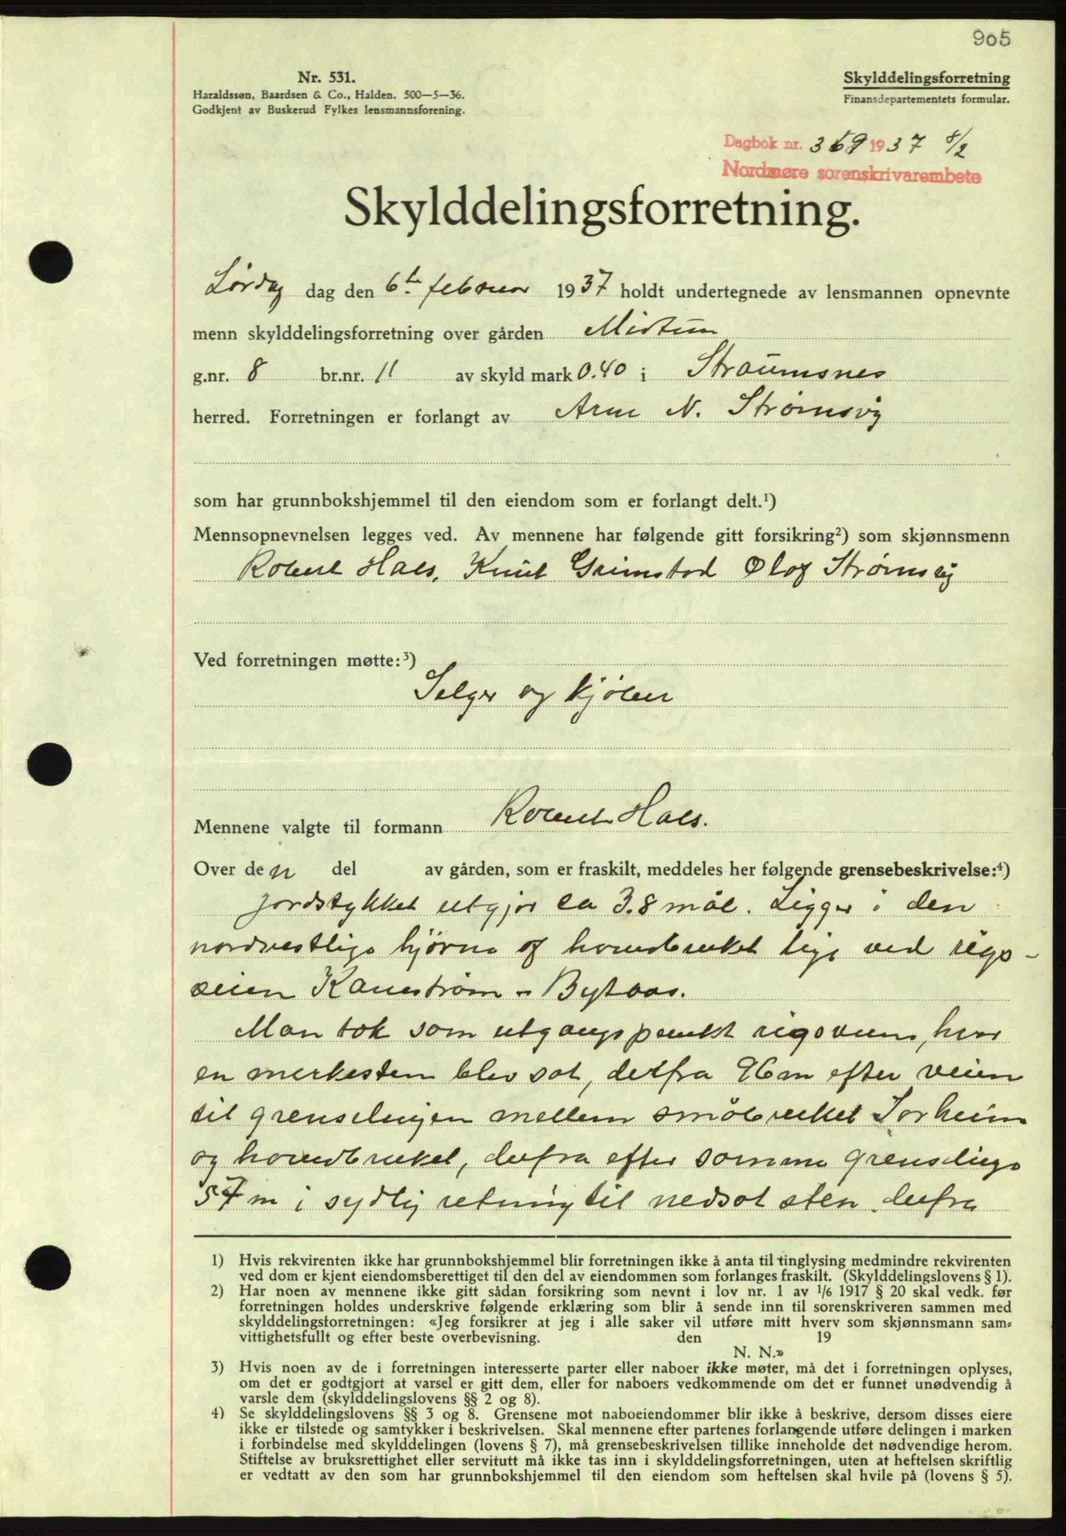 905
Nr. 531.
Haraldssøn, Baardsen & Co., Halden. 500—5—36.
Godkjent av Buskerud Fylkes lensmannsforening.
Skylddelingsforretning
Finansdepartementets formular.
Dagbok nr. 369 1937 8/2
Nordmøre sorenskrivarembete
Skylddelingsforretning.
Lørdag dag den 6te februar 1937 holdt undertegnede av lensmannen opnevnte
menn skylddelingsforretning over gården
g.nr. 8 br.nr. 11 av skyld mark 0.40 i Straumsnes
herred. Forretningen er forlangt av Arne N. Strømsvig
som har grunnbokshjemmel til den eiendom som er forlangt delt.¹)
Mennsopnevnelsen legges ved. Av mennene har følgende gitt forsikring²) som skjønnsmenn
Robert Hals, Knut Grimstad Olaf Strømsvig
Ved forretningen møtte:³)
Selger og kjøber
Mennene valgte til formann Robert Hals.
Over den del av gården, som er fraskilt, meddeles her følgende grensebeskrivelse:⁴)
Jordstykket utgjør ca 3.8 mål. Ligger i den
nordvestlige hjørne af hovedbruket lige ved rigs-
veien Kanestrøm -
Man tok som utgangspunkt rigsveien, hvor
en merkesten blev sat, derfra 96 m efter veien
til grenselinjen mellem småbruket Sorheim
og hovedbruket, derfra efter samme grenselinje
57 m i sydlig retning til nedsat sten. derfra
1) Hvis rekvirenten ikke har grunnbokshjemmel blir forretningen ikke å anta til tinglysing medmindre rekvirenten
ved dom er kjent eiendomsberettiget til den del av eiendommen som forlanges fraskilt. (Skylddelingslovens § 1).
2) Har noen av mennene ikke gitt sådan forsikring som nevnt i lov nr. 1 av 1/6 1917 § 20 skal vedk. før
forretningen holdes underskrive følgende erklæring som blir å sende inn til sorenskriveren sammen med
skylddelingsforretningen: «Jeg forsikrer at jeg i alle saker vil utføre mitt hverv som skjønnsmann sam-
vittighetsfullt og efter beste overbevisning. den 19
N. N.»
3) Hvis noen av de i forretningen interesserte parter eller naboer ikke møter, må det i forretningen oplyses,
om det er godtgjort at varsel er gitt dem, eller for naboers vedkommende om det er funnet unødvendig å
varsle dem (skylddelingslovens §§ 2 og 8).
4) Se skylddelingslovens §§ 3 og 8. Grensene mot naboeiendommer blir ikke å beskrive, dersom disses eiere
ikke er tilstede og samtykker i beskrivelsen. Skal mennene efter partenes forlangende utføre delingen i marken
i forbindelse med skylddelingen (lovens § 7), må grensebeskrivelsen tillike inneholde det nødvendige herom.
Stiftelse av bruksrettighet eller servitutt må ikke tas inn i skylddelingsforretningen, uten at heftelsen skriftlig
er vedtatt av den som har grunnbokshjemmel til den eiendom som heftelsen skal hvile på (lovens § 5).